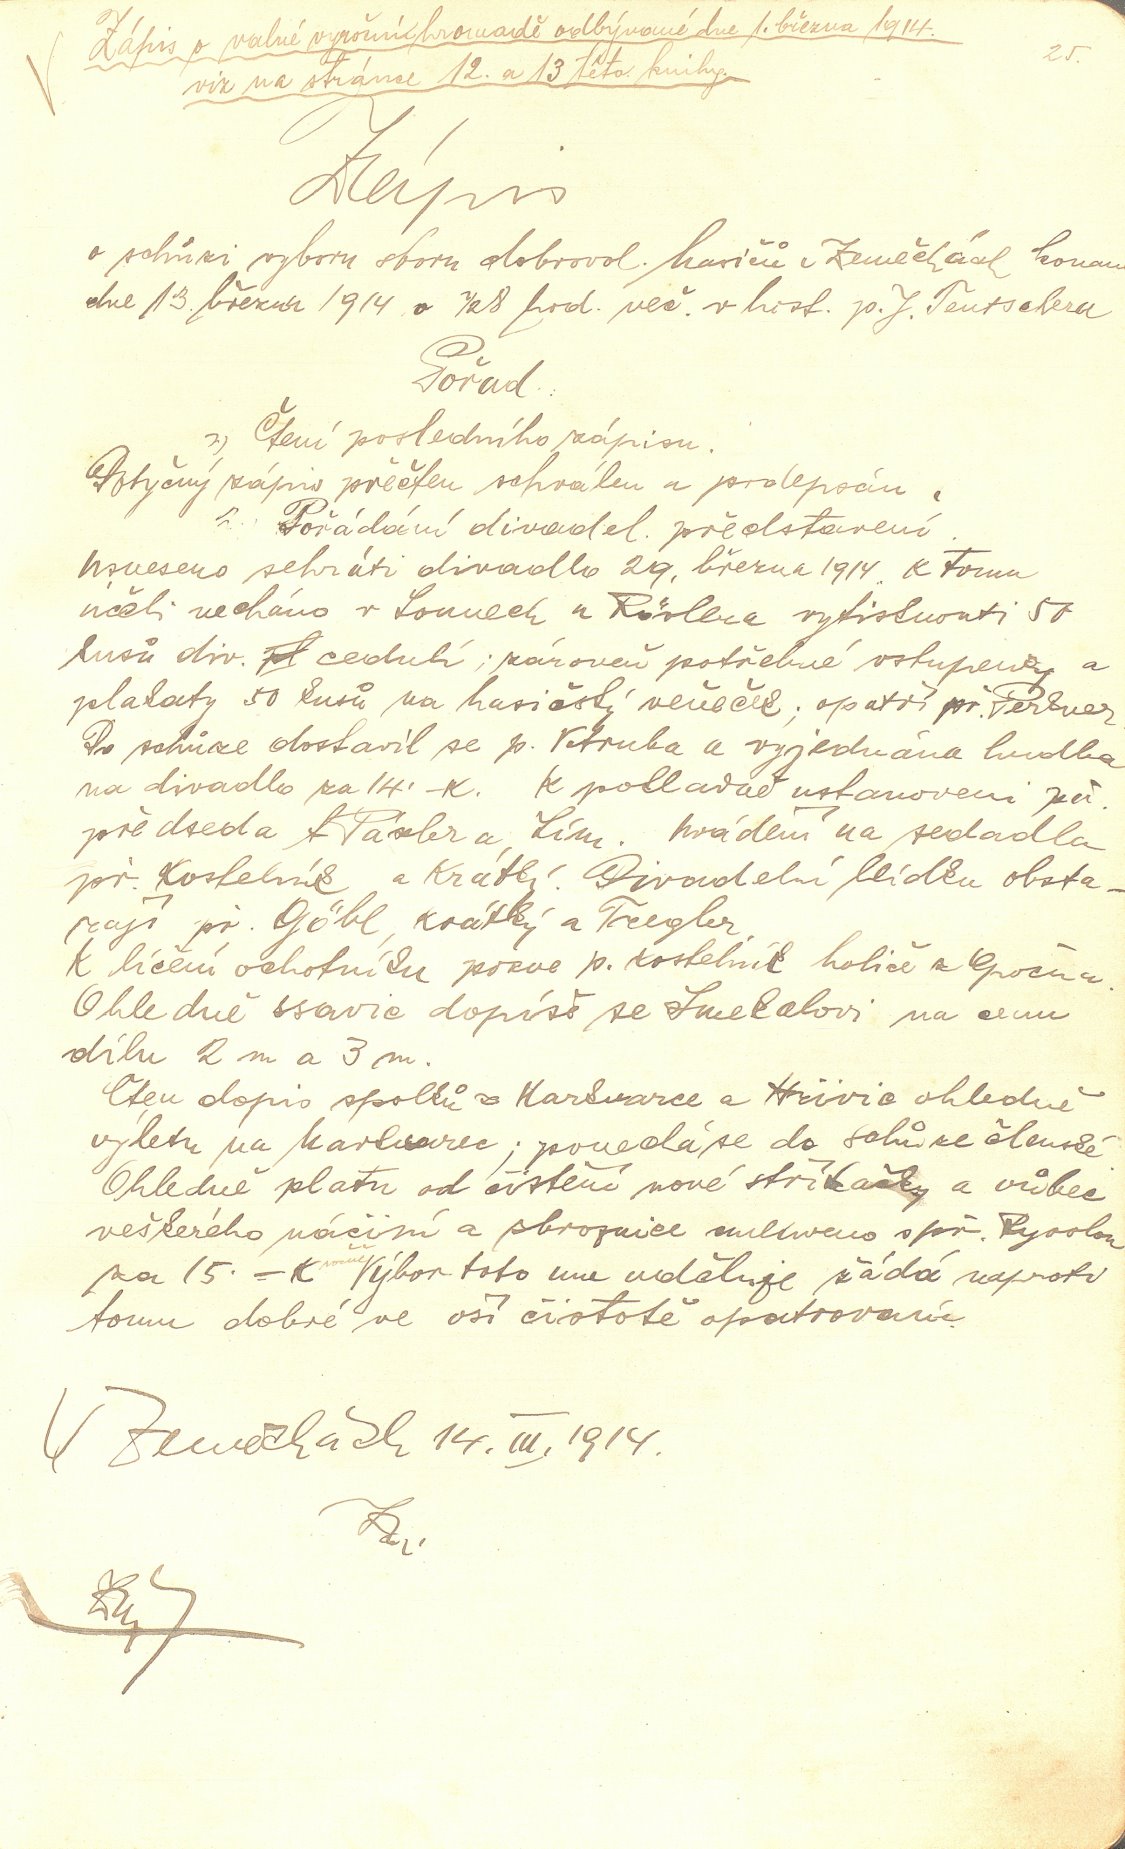 Zápis o valné výroční hromadě odbývané dne 1. března 1914.
viz na stránce 12. a 13 této knihy.
25.
Zápis
o schůzi vyboru sboru dobrovol. hasičů v Zeměchách konané
dne 13. března 1914 o 1/28 hod. več. v host. p. J. Teutschera
Pořad.
1) Čtení posledního zápisu.
Dotyčný zápis přečten schválen a podepsán.
2. Pořádání divadel. představení.
Usneseno sehráti divadlo 29. března 1914. K tomu
účeli necháno v Lounech u vytisknouti 50
kusů div. cedulí; zároveň potřebné vstupenky a
plakaty 50 kusů na hasičský veneček; opatří př. Perkner
Do schůze dostavil se p. Vetruba a vyjednána hudba
na divadlo za 14.-K. K pokladně ustanoveni při.
předseda A Páxler a Lím. na sedadla
př. Kostelník a Krátký. Divadelní klidku obsta-
rají př. Göbl, Krátký a Treglr.
K líčení ochotníku pozve p. Kostelník holiče z Opočna.
Ohledně ssavic dopíše se Smekalovi na cenu
dílu 2 m a 3 m.
Čten dopis spolků z Markvarce a Hřivic ohledně
výletu na Markvarec; ponechá se do schůze členské
Ohledně platu od čistění nové stříkačky a vůbec
veškerého náčiní a zbroznice umluveno s př.
za 15.-K ročně Výbor toto mu uděluje žádá naproti
tomu dobré ve vší čistotě opatrovaní.
V Zeměchách 14. III. 1914.